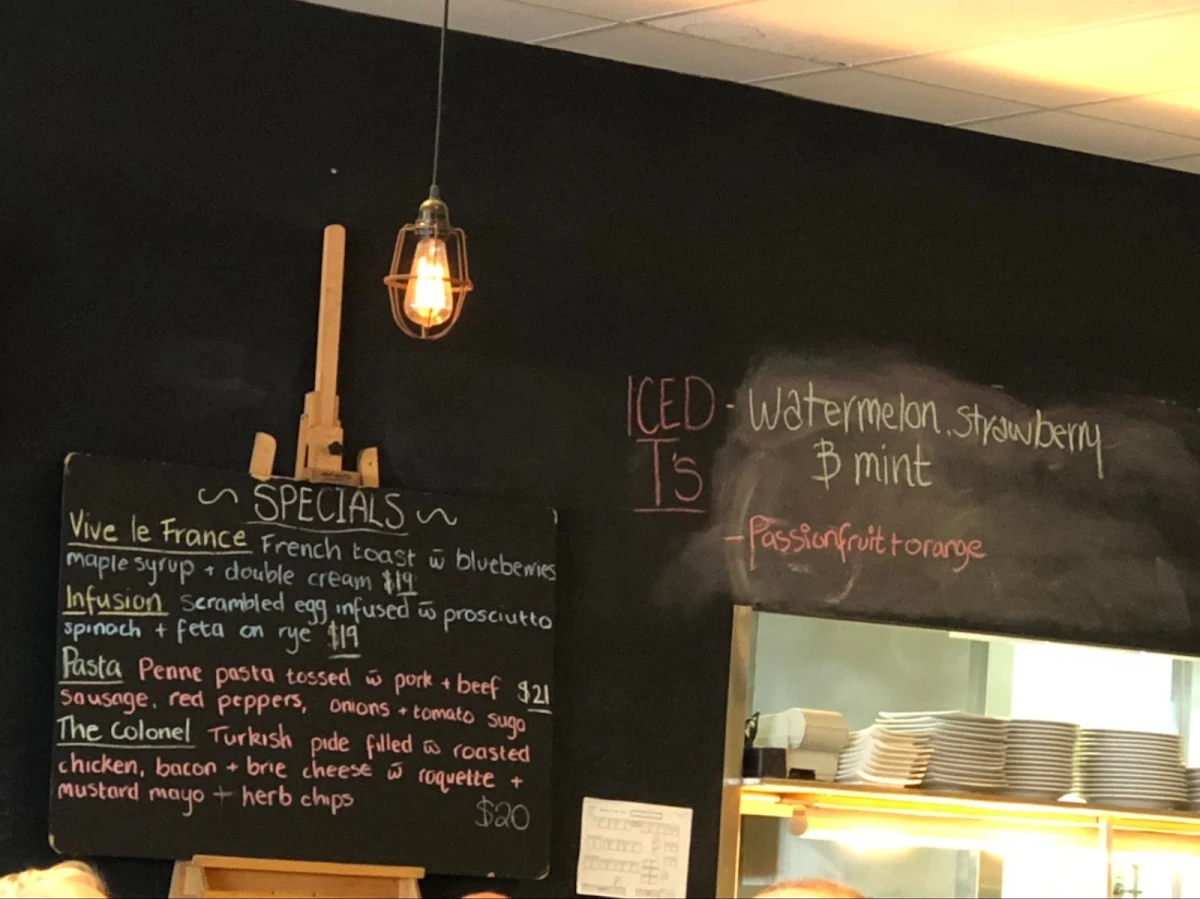 ~ SPECIALS ~
Vive le France French toast w̄ blueberries
maple syrup + double cream $19
Infusion Scrambled egg infused w̄ prosciutto
spinach + feta on rye $19
Pasta Penne pasta tossed w̄ pork + beef $21
sausage, red peppers, onions + tomato sugo
The Colonel Turkish pide filled w̄ roasted
chicken, bacon + brie cheese w̄ roquette +
mustard mayo + herb chips
$20
ICED - Watermelon, Strawberry
T's & mint
- Passionfruit + orange